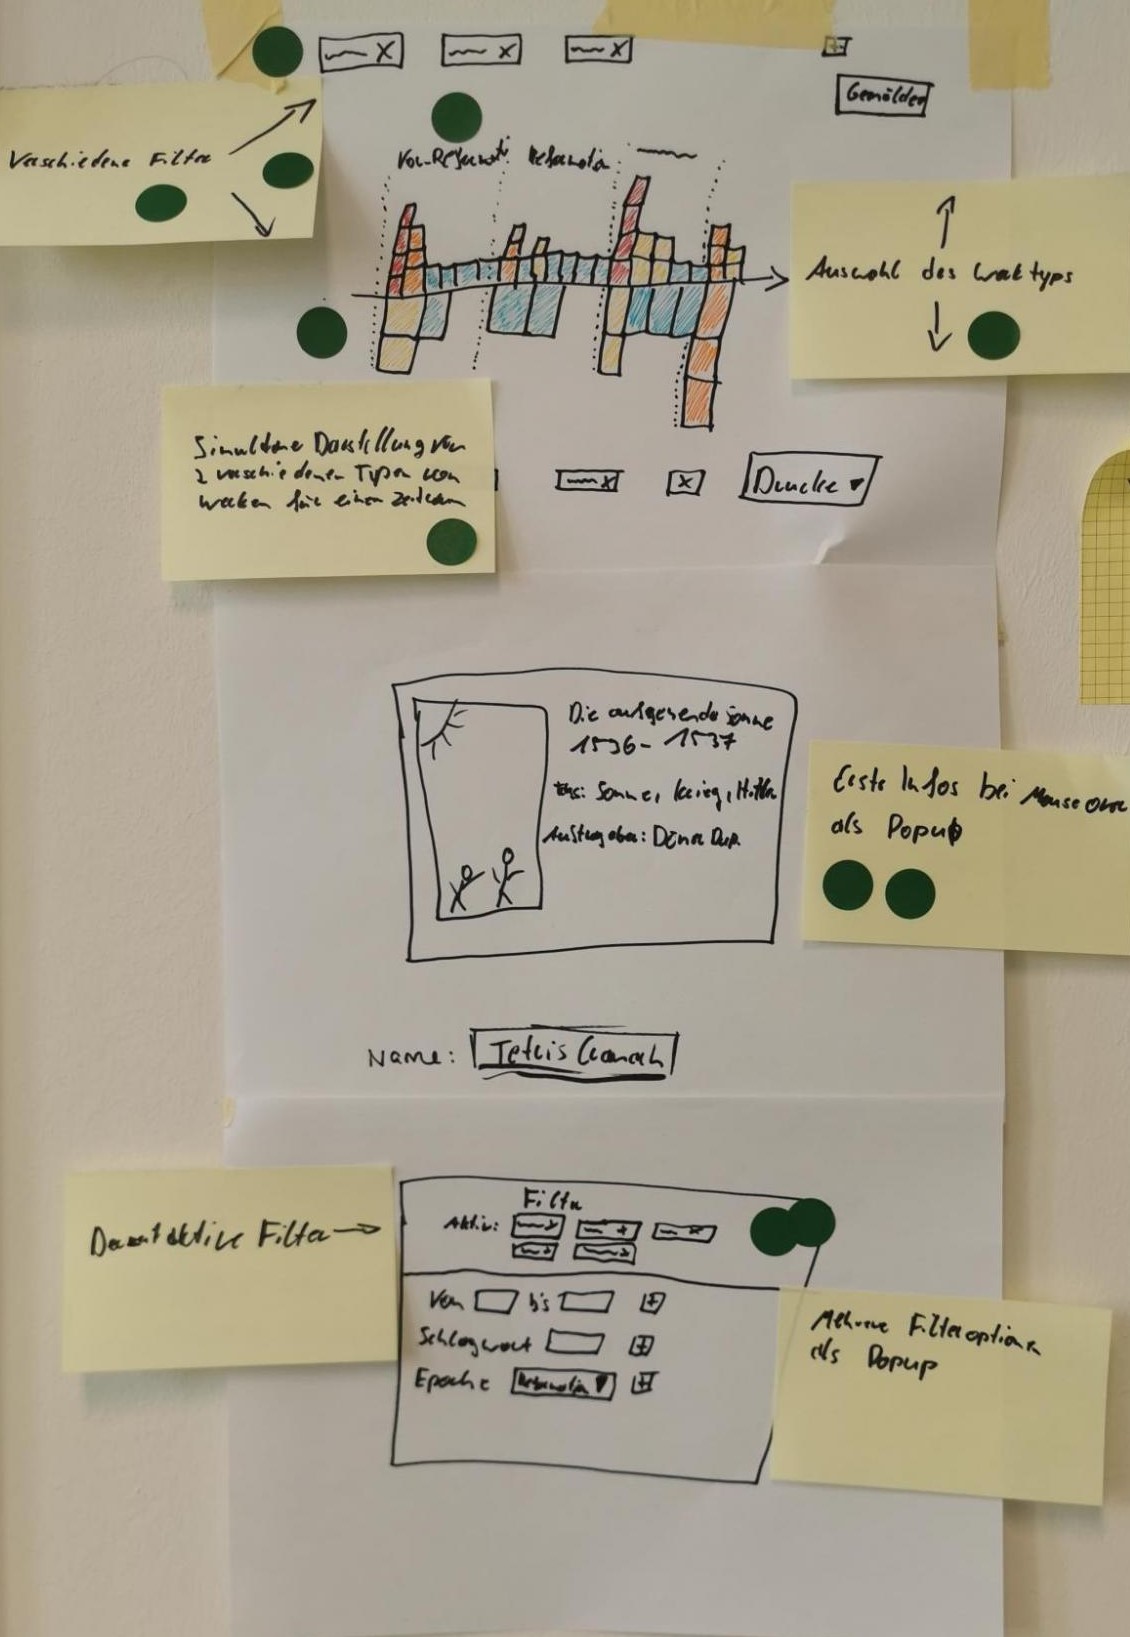 Gemälde
Verschiedene Filter
Vor-Reformat. Reformation
Auswahl des Werktyps
Simultane Darstellung von
2 verschiedenen Typen von
Werken für einen Zeitraum
Drucke
Die aufgehende Sonne
1536 - 1537
Tags: Sonne, Krieg,
Auftraggeber:
Erste Infos bei Mouseover
als Popup
Name: Tetris Cranach
Derzeit aktive Filter
Filter
Aktiv:
Von bis
Schlagwort
Epoche Reformation
Mehrere Filteroptionen
als Popup